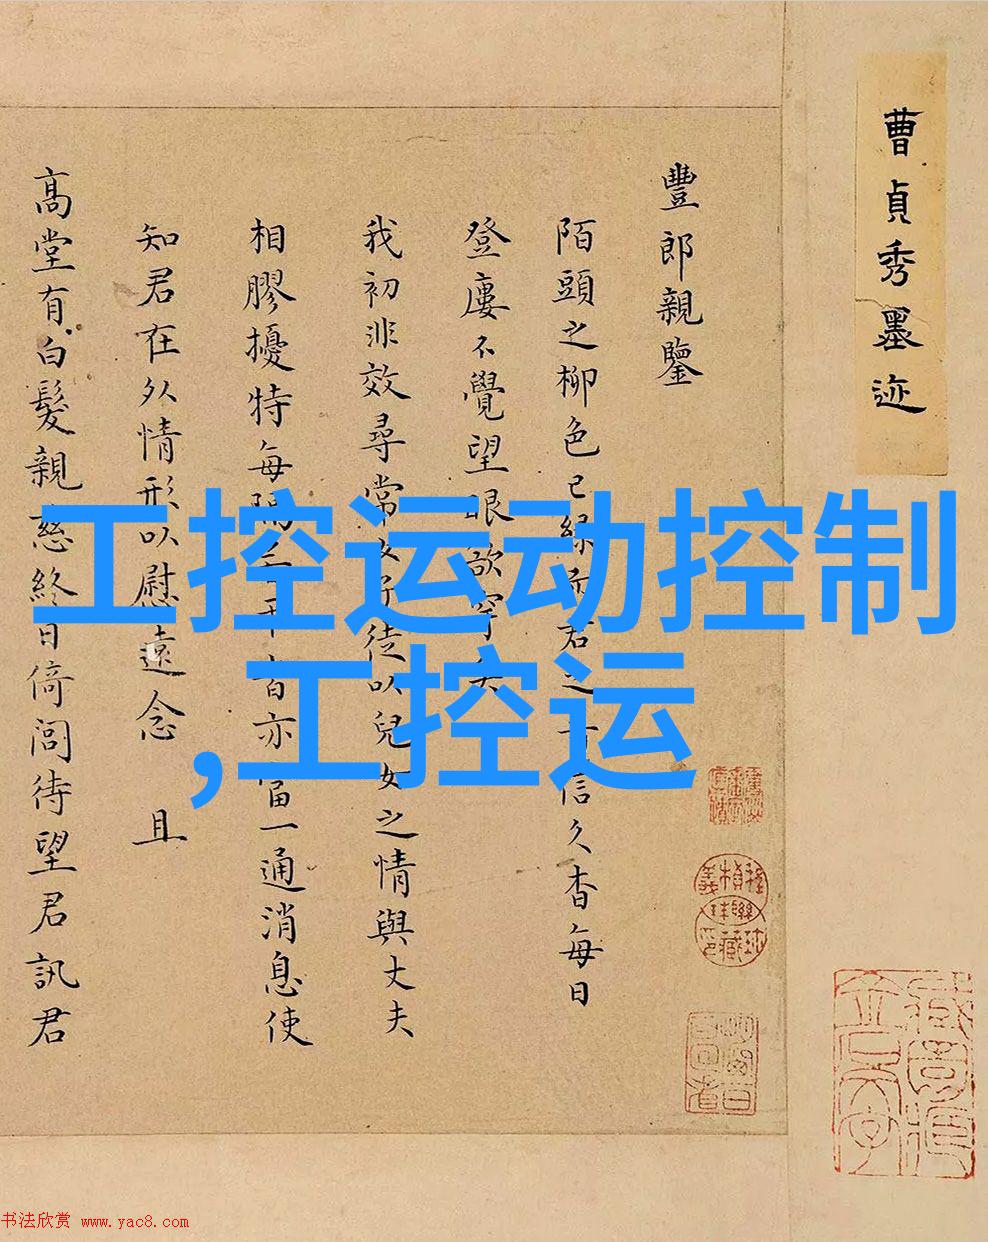 曹貞秀墨迹
豐郎親鑒
陌頭之柳色已綠君之信久杳每日
登廔不覺望眼欲穿矣
我初非效尋常女子徒以兒女之情與丈夫
相膠擾特每隔亦當一通消息使
知君在外情形以慰遠念 且
高堂有白髮親慈終日倚閭待望君訊君
工控运动控制
,工控运
书法欣赏 www.yac8.com